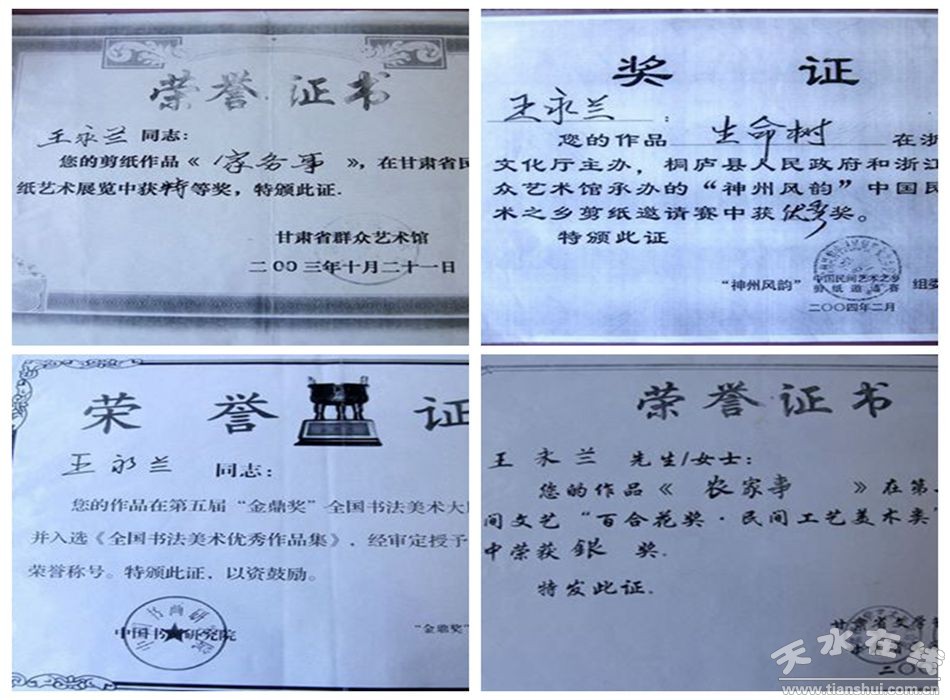 荣誉证书
王永兰 同志：
您的剪纸作品《家务事》，在甘肃省民
纸艺术展览中获特等奖，特颁此证.
甘肃省群众艺术馆
二00三年十月二十一日
奖 证
王永兰：
您的作品 生命树 在浙
文化厅主办，桐庐县人民政府和浙江
众艺术馆承办的“神州风韵”中国民
术之乡剪纸邀请赛中获优秀奖。
特颁此证
“神州风韵” 中国民间艺术之乡 组委
剪纸邀请赛
二〇〇四年二月
荣 誉 证
王永兰 同志：
您的作品在第五届“金鼎奖”全国书法美术大
并入选《全国书法美术优秀作品集》，经审定授予
荣誉称号。特颁此证，以资鼓励。
中国书画研究院
“金鼎奖”
荣誉证书
王永兰 先生/女士：
您的作品《农家事》在第
间文艺“百合花奖·民间工艺美术类”
中荣获 銀 奖.
特发此证.
甘肃省文学
二〇〇
天水在线
www.tianshui.com.cn